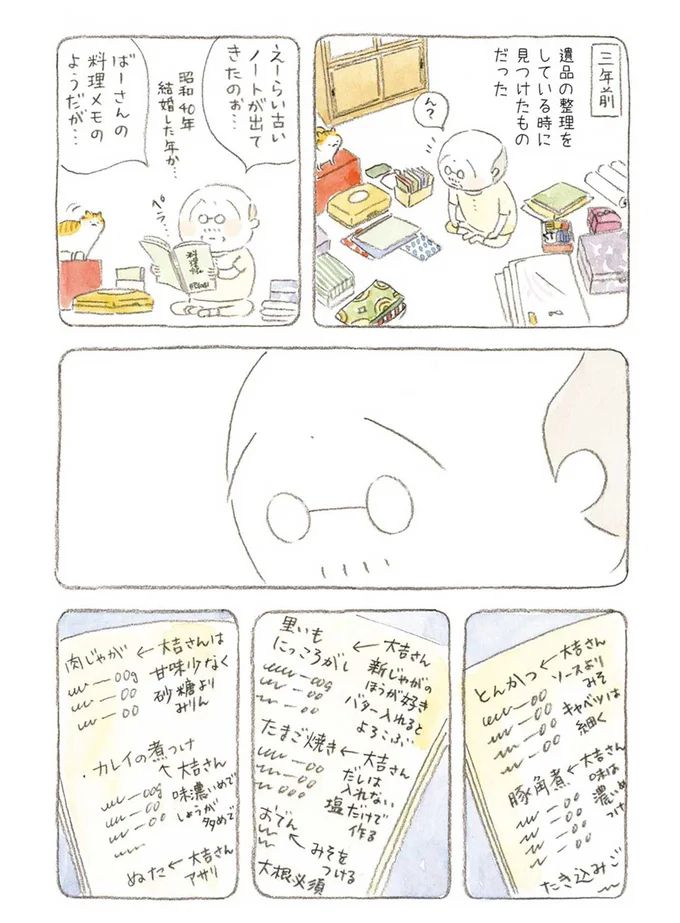 三年前
遺品の整理を
している時に
見つけたもの
だった
ん?
えーらい古い
ノートが出て
きたのぉ…
昭和40年
結婚した年か…
ばーさんの
料理メモの
ようだが…
ペラ…
料理帳
とんかつ←大吉さん
ソースより
みそ
キャベツは
細く
豚角煮←大吉さん
味は
濃いめ
つけ
たき込みご
里いも
にっころがし
←大吉さん
新じゃがの
ほうが好き
バター入れると
よろこぶ
たまご焼き←大吉さん
だしは
入れない
塩だけで
作る
おでん
←みそを
つける
大根必須
肉じゃが←大吉さんは
甘味少なく
砂糖より
みりん
・カレイの煮つけ
←大吉さん
味濃いめで
しょうが
多めで
ぬた←大吉さん
アサリ